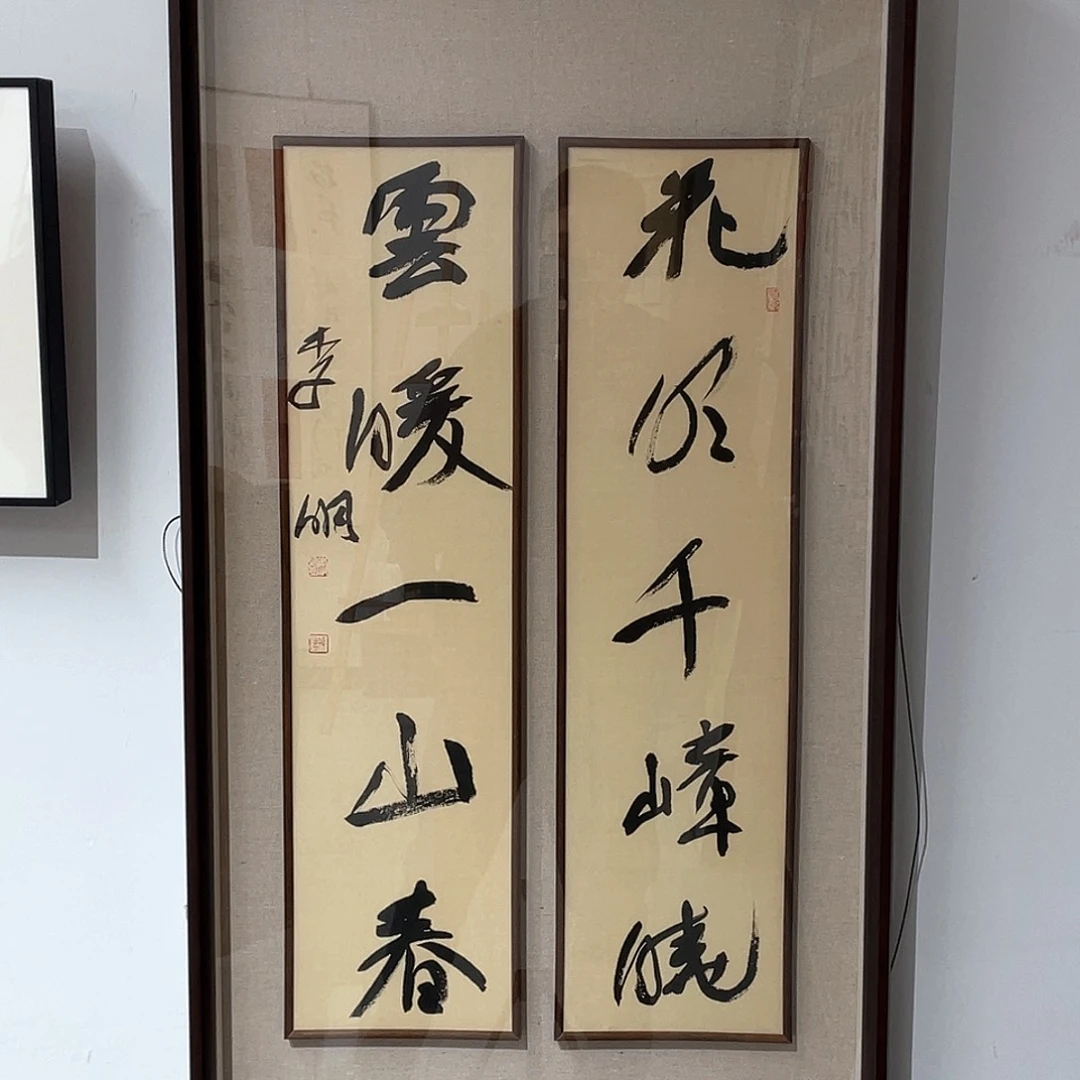 花明千嶂曉
雲暖一山春
李明